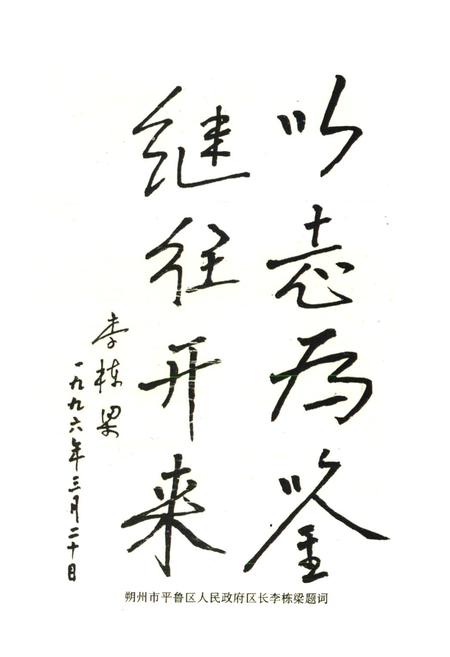 以志为鉴
继往开来
李栋梁
一九九六年三月二十日
朔州市平鲁区人民政府区长李栋梁题词